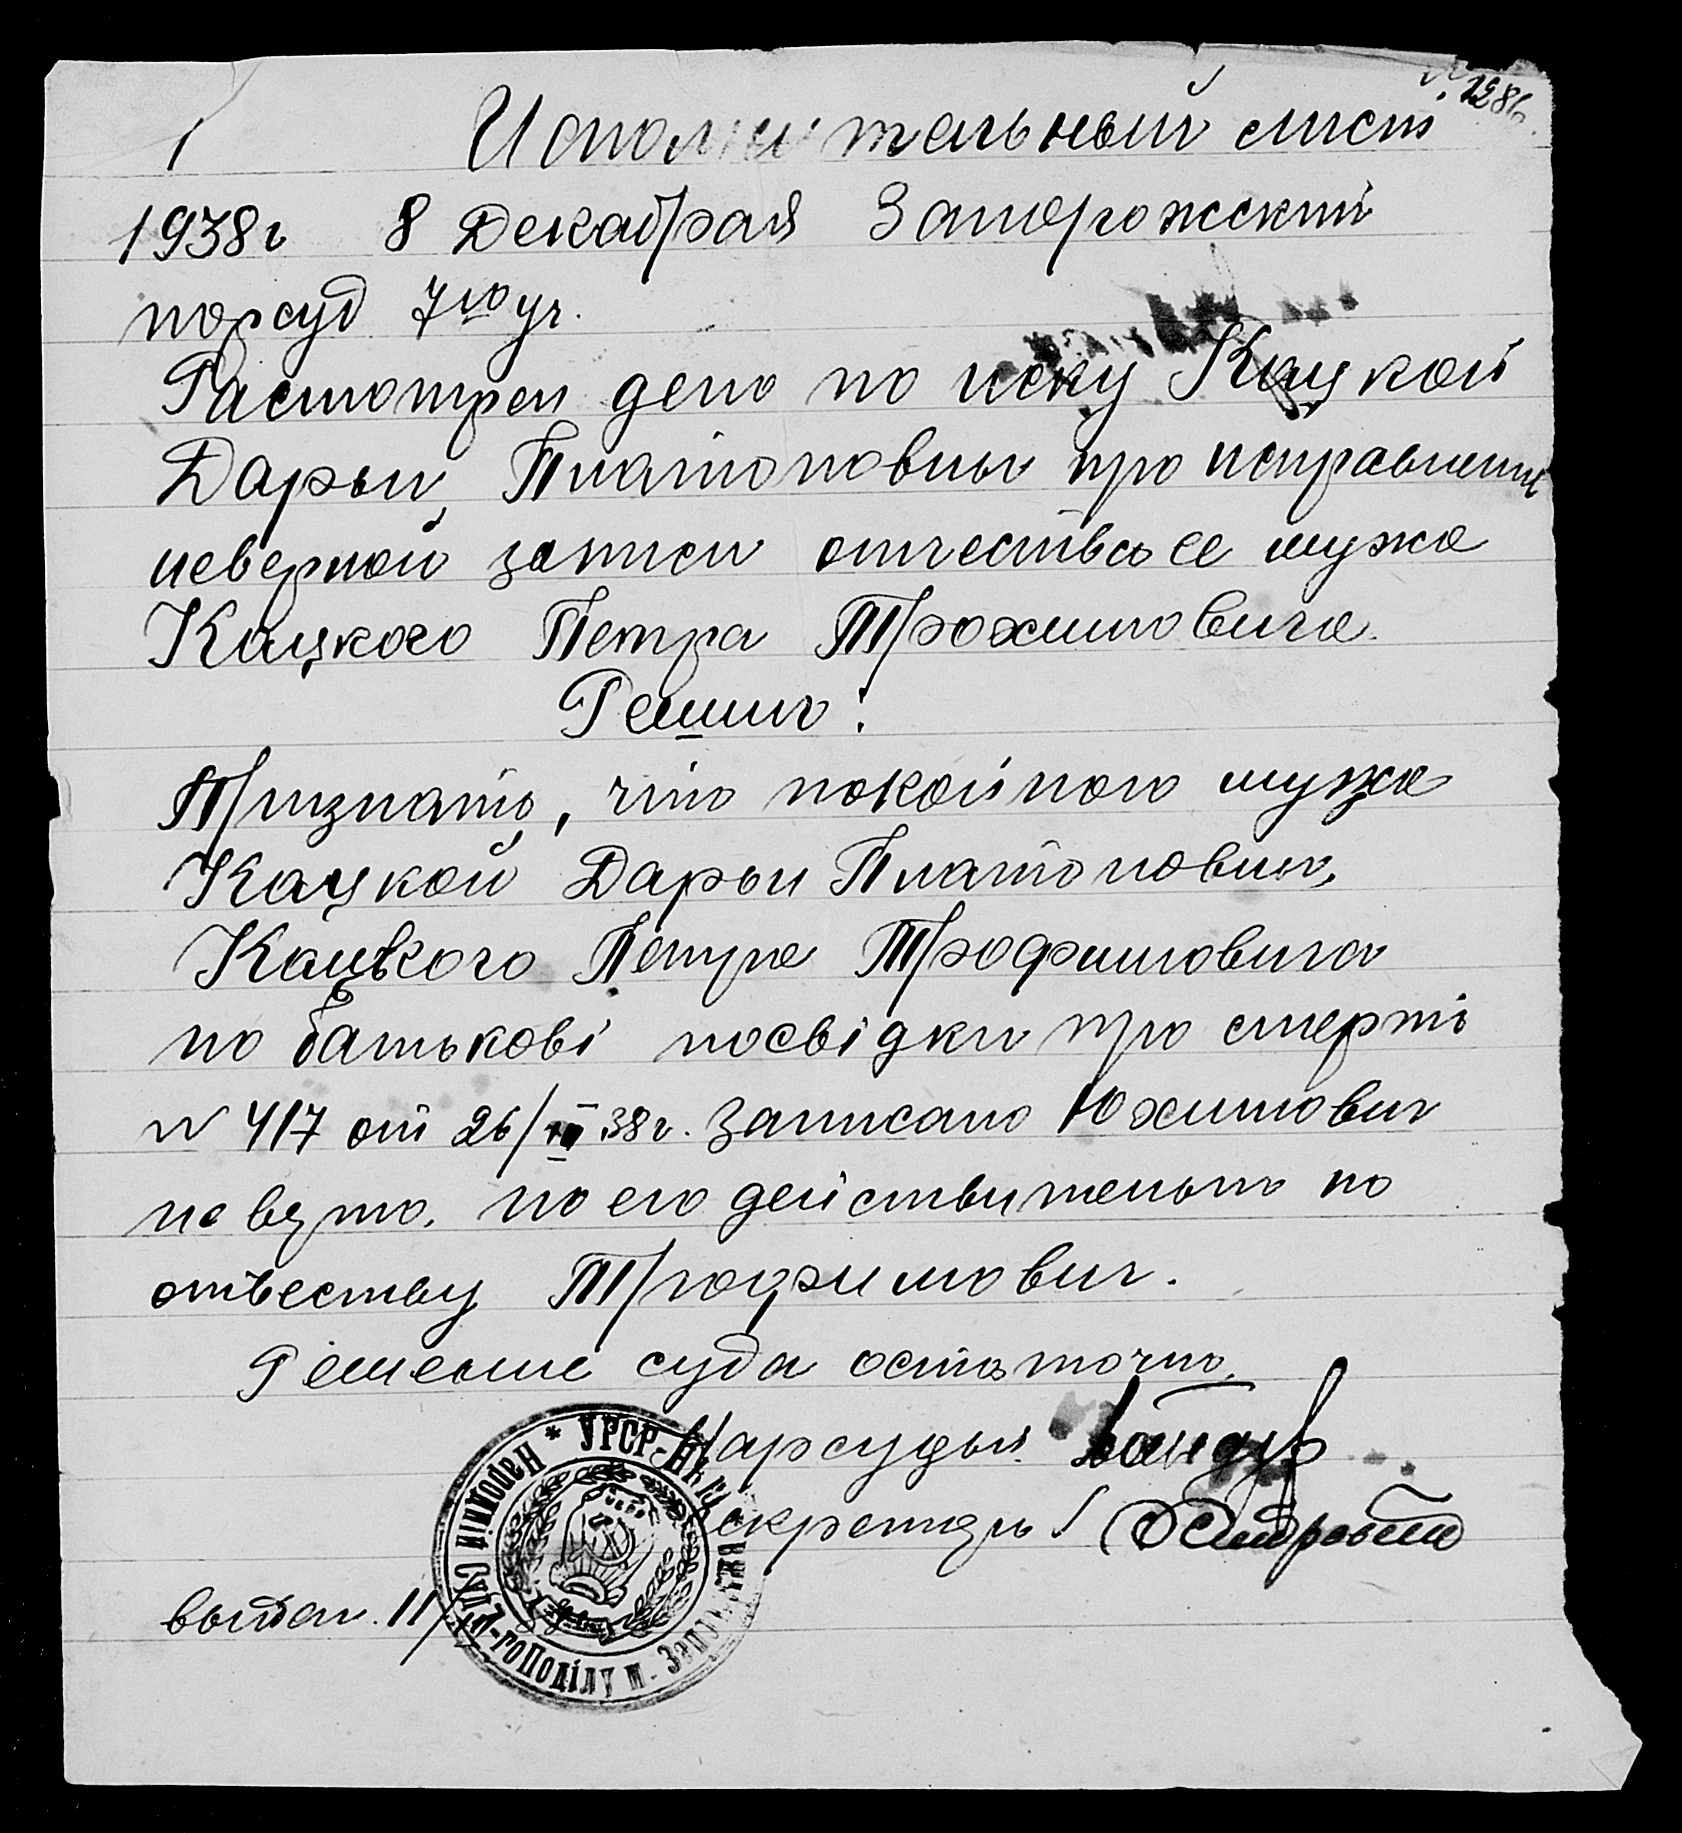 № 1286
1 Исполнительный лист
1938 г 8 Декабря Запорожский
нарсуд 7го уч.
Расмотрел дело по иску Кацкой
Дарьи Платоновны про исправление
неверной записи отчества ее мужа
Кацкого Петра Трохимовича.
Решил:
Признать, что покойного мужа
Кацкой Дарьи Платоновны,
Кацкого Петра Трофимовича
по батькові посвідки про смерть
N 417 от 26/ 38 г. записано Юхимович
не верно. по его действительно по
отчеству Трофимович.
Решение суда остаточно.
Нарсудья
Секретарь
выдан. 11/
УРСР-НКЮ * Народній Суд 7-го поділу м. Запоріжжя